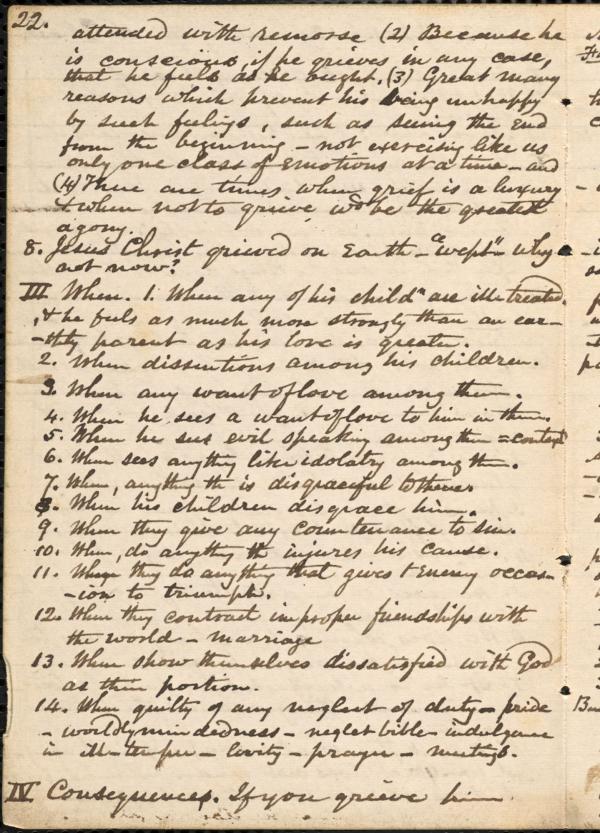 22.
attended with remorse (2) Because he
is conscious, if he grieves in any case,
that he feels as he ought. (3) Great many
reasons which prevent his being unhappy
by such feelings, such as seeing the End
from the beginning - not exercising like us
only one class of Emotions at a time - and
(4) There are times when grief is a luxury
& when not to grieve wd be the greatest
agony.
8. Jesus Christ grieved on Earth - "wept" - why
not now?
III When. 1. When any of his childn are ill-treated.
, & he feels as much more strongly than an ear-
-thly parent as his love is greater.
2. When dissentions among his children.
3. When any want of love among them.
4. When he sees a want of love to him in them.
5. When he sees evil speaking among them = context
6. When sees anything like idolatry among them.
7. When, anything th is disgraceful to
8. When his children disgrace him.
9. When they give any countenance to sin.
10. When, do anything th injures his cause.
11. When they do anything that gives t Enemy occas-
-ion to triumph.
12. When they contract improper friendships with
the world - marriage
13. When show themselves dissatisfied with God
as their portion.
14. When guilty of any neglect of duty - pride
- worldly mindedness - neglet bible - indulgence
in ill-temper - levity - prayer - meetings.
IV Consequences. If you grieve him